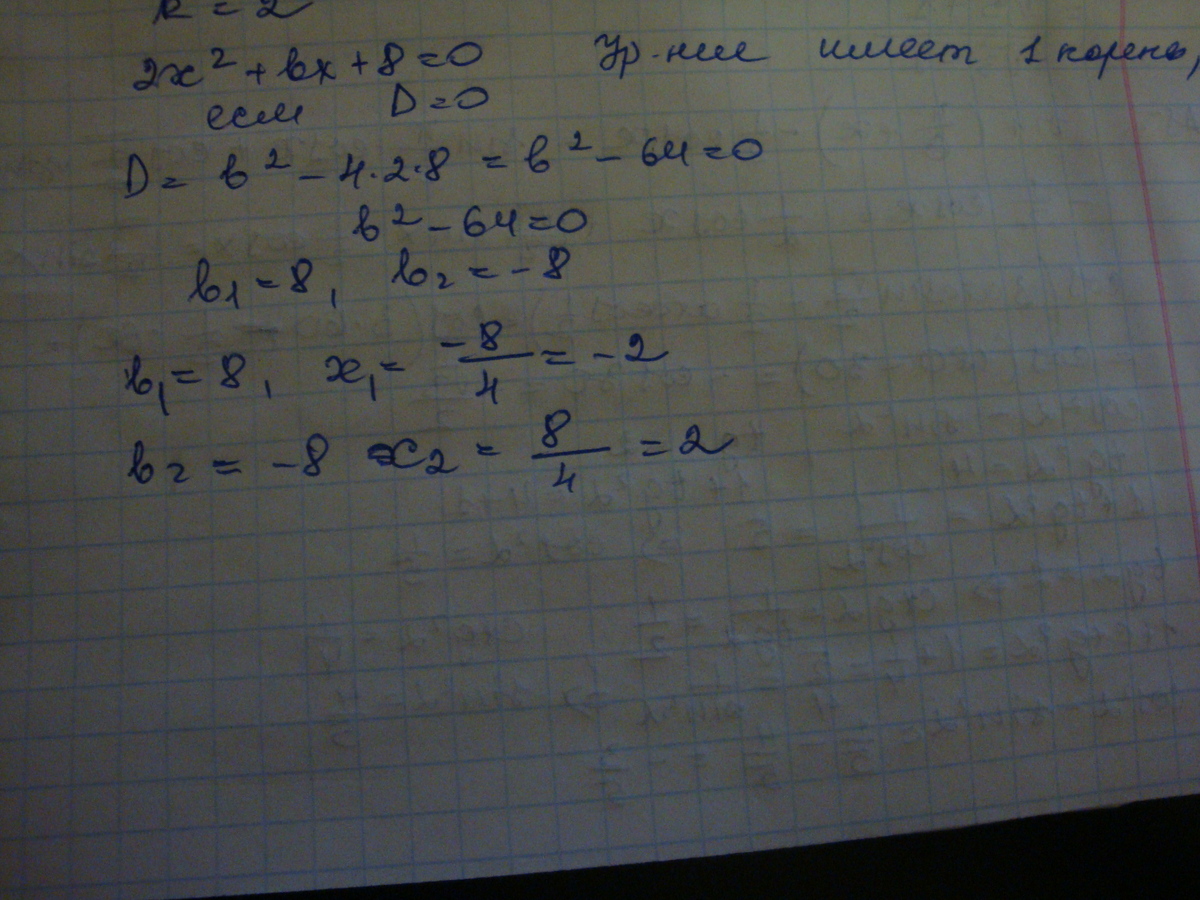 k = 2
2x² + bx + 8 = 0 Ур-ние имеет 1 корень,
если D = 0
D = b² - 4·2·8 = b² - 64 = 0
b² - 64 = 0
b₁ = 8, b₂ = -8
b₁ = 8, x₁ = -8/4 = -2
b₂ = -8 x₂ = 8/4 = 2